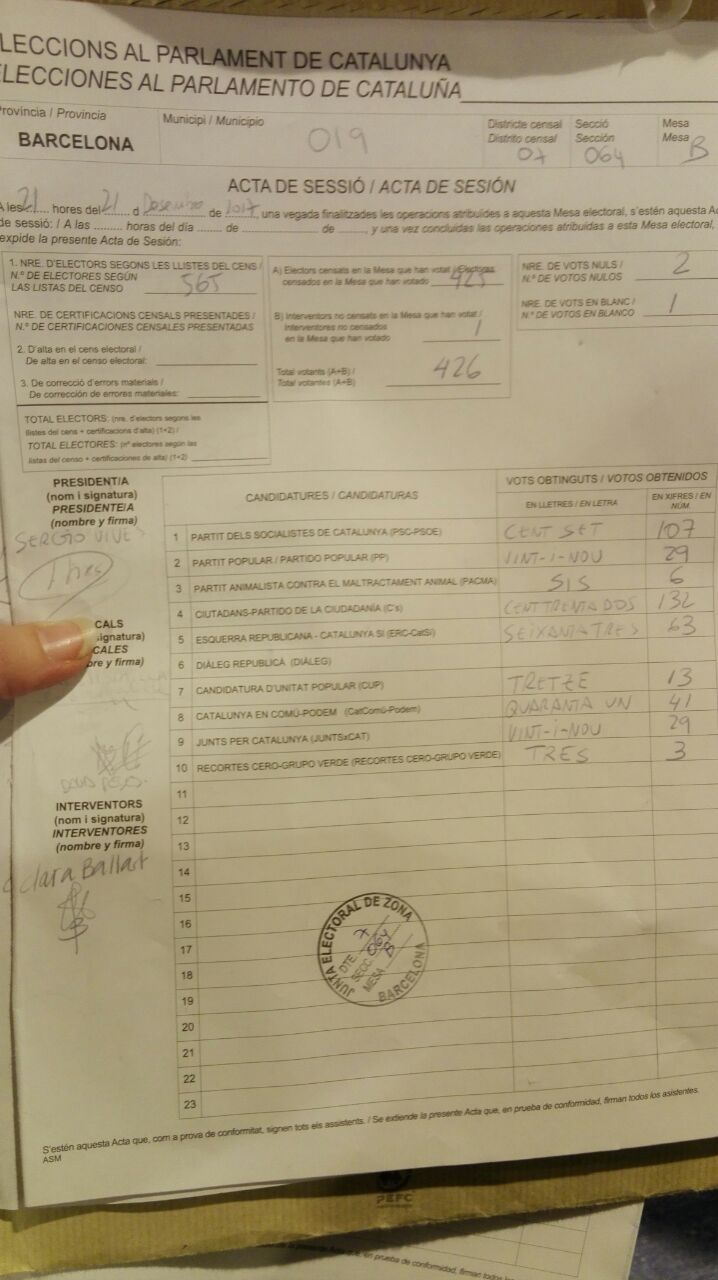 LECCIONS AL PARLAMENT DE CATALUNYA
ELECCIONES AL PARLAMENTO DE CATALUÑA
Província / Provincia
BARCELONA
Municipi / Municipio
019
Districte censal
Distrito censal
07
Secció
Sección
064
Mesa
Mesa
B
ACTA DE SESSIÓ / ACTA DE SESIÓN
A les 21 hores del 21 d Desembre de 2017, una vegada finalitzades les operacions atribuïdes a aquesta Mesa electoral, s'estén aquesta Acta
de sessió: / A las ......... horas del día ....... de .................... de ......, y una vez concluidas las operaciones atribuidas a esta Mesa electoral,
expide la presente Acta de Sesión:
1. NRE. D'ELECTORS SEGONS LES LLISTES DEL CENS /
N.º DE ELECTORES SEGÚN
LAS LISTAS DEL CENSO 565
NRE. DE CERTIFICACIONS CENSALS PRESENTADES /
N.º DE CERTIFICACIONES CENSALES PRESENTADAS
2. D'alta en el cens electoral /
De alta en el censo electoral:
3. De correcció d'errors materials /
De corrección de errores materiales:
TOTAL ELECTORS: (nre. d'electors segons les
llistes del cens + certificacions d'alta) (1+2) /
TOTAL ELECTORES: (nº electores según las
listas del censo + certificaciones de alta) (1+2)
A) Electors censats en la Mesa que han votat / Electores
censados en la Mesa que han votado 425
B) Interventors no censats en la Mesa que han votat /
Interventores no censados
en la Mesa que han votado 1
Total votants (A+B) /
Total votantes (A+B) 426
NRE. DE VOTS NULS /
N.º DE VOTOS NULOS 2
NRE. DE VOTS EN BLANC /
N.º DE VOTOS EN BLANCO 1
PRESIDENT/A
(nom i signatura)
PRESIDENTE/A
(nombre y firma)
SERGIO VIVES
CALS
signatura)
CALES
bre y firma)
INTERVENTORS
(nom i signatura)
INTERVENTORES
(nombre y firma)
Clara Ballart
CANDIDATURES / CANDIDATURAS
VOTS OBTINGUTS / VOTOS OBTENIDOS
EN LLETRES / EN LETRA
EN XIFRES / EN
NÚM.
1 PARTIT DELS SOCIALISTES DE CATALUNYA (PSC-PSOE) CENT SET 107
2 PARTIT POPULAR / PARTIDO POPULAR (PP) VINT-I-NOU 29
3 PARTIT ANIMALISTA CONTRA EL MALTRACTAMENT ANIMAL (PACMA) SIS 6
4 CIUTADANS-PARTIDO DE LA CIUDADANÍA (C's) CENT TRENTA DOS 132
5 ESQUERRA REPUBLICANA - CATALUNYA SÍ (ERC-CatSí) SEIXANTA TRES 63
6 DIÀLEG REPUBLICÀ (DIÀLEG)
7 CANDIDATURA D'UNITAT POPULAR (CUP) TRETZE 13
8 CATALUNYA EN COMÚ-PODEM (CatComú-Podem) QUARANTA UN 41
9 JUNTS PER CATALUNYA (JUNTSxCAT) VINT-I-NOU 29
10 RECORTES CERO-GRUPO VERDE (RECORTES CERO-GRUPO VERDE) TRES 3
11
12
13
14
15
16
17
18
19
20
21
22
23
JUNTA ELECTORAL DE ZONA
DTE. 7
SECC. 064
MESA B
BARCELONA
S'estén aquesta Acta que, com a prova de conformitat, signen tots els assistents. / Se extiende la presente Acta que, en prueba de conformidad, firman todos los asistentes.
ASM
PEFC